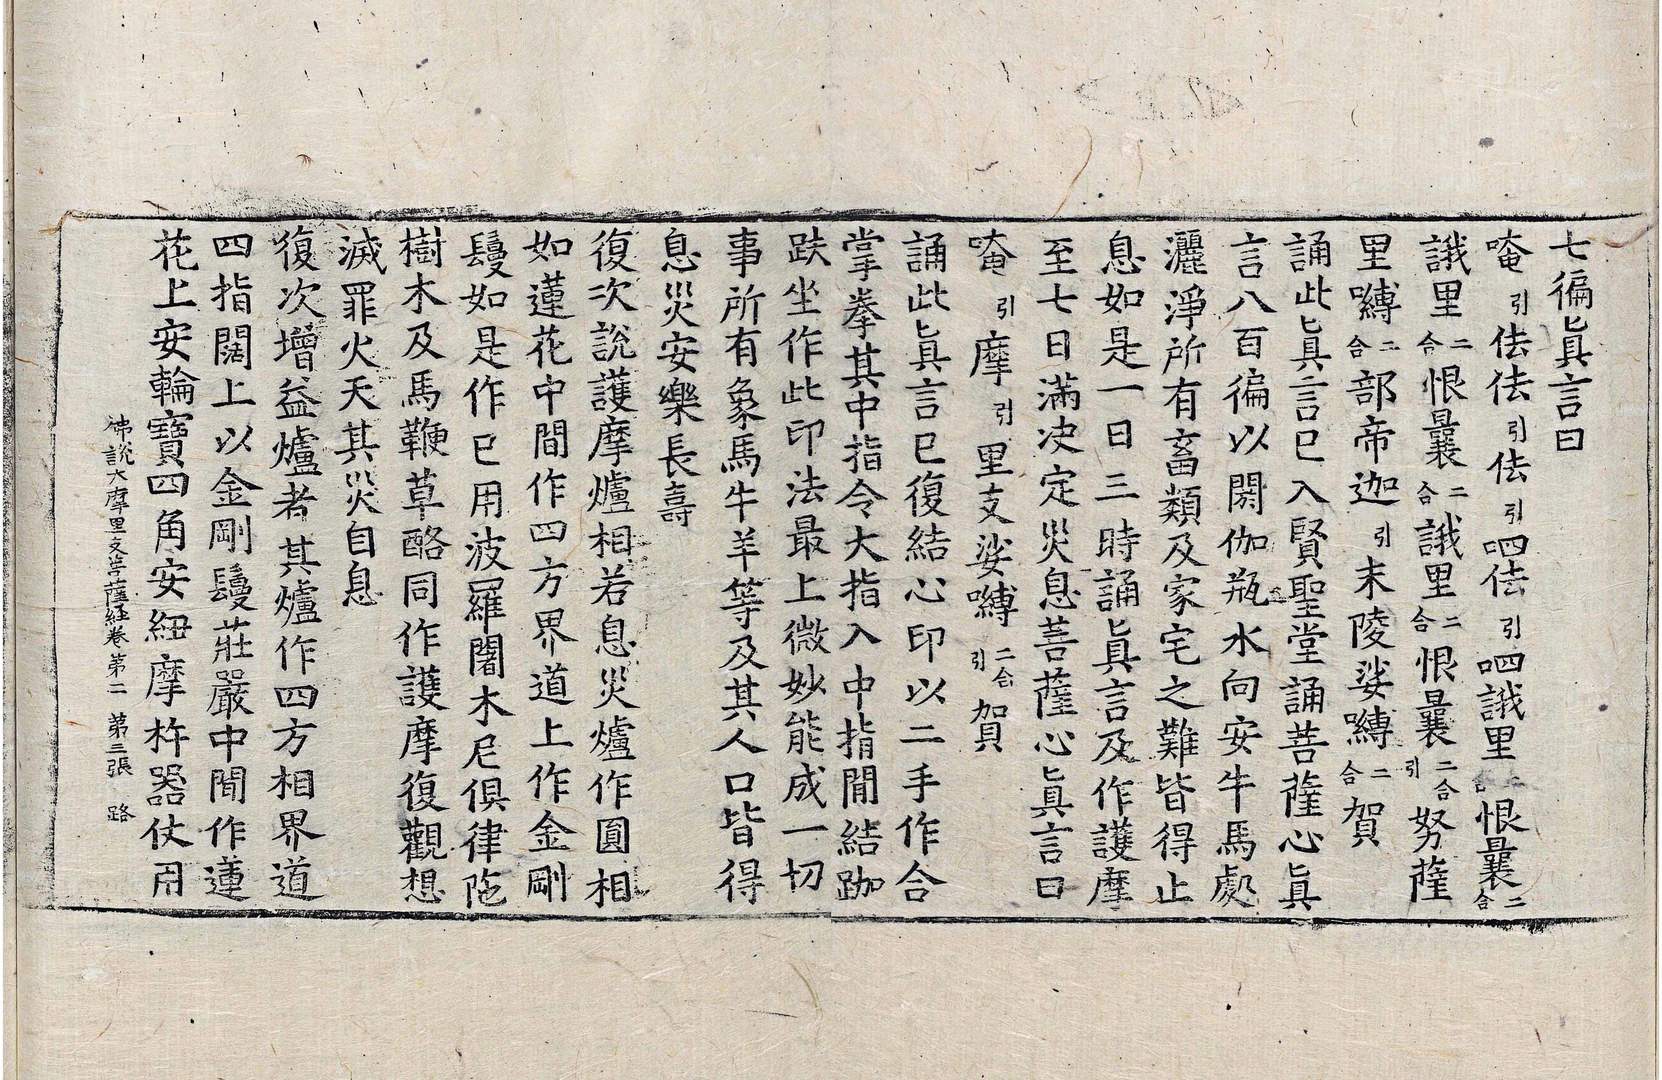 七徧眞言曰
唵引佉佉引佉引呬佉引呬誐里二合恨曩二合
誐里二合恨曩二合誐里二合恨曩二合引努薩
里嚩二合部帝迦引末陵娑嚩二合賀
誦此眞言已入賢聖堂誦菩薩心眞
言八百徧以閼伽瓶水向安牛馬處
灑淨所有畜類及家宅之難皆得止
息如是一日三時誦眞言及作護摩
至七日滿决定災息菩薩心眞言曰
唵引摩引里支娑嚩二合引賀
誦此眞言已復結心印以二手作合
掌拳其中指令大指入中指間結跏
趺坐作此印法最上微妙能成一切
事所有象馬牛羊等及其人口皆得
息災安樂長壽
復次說護摩爐相若息災爐作圓相
如蓮花中間作四方界道上作金剛
鬘如是作已用波羅闍木尼俱律陁
樹木及馬鞭草酪同作護摩復觀想
滅罪火天其災自息
復次增益爐者其爐作四方相界道
四指闊上以金剛鬘莊嚴中間作蓮
花上安輪寶四角安紐摩杵器仗用
佛說大摩里支菩薩經卷第二 第三張 路